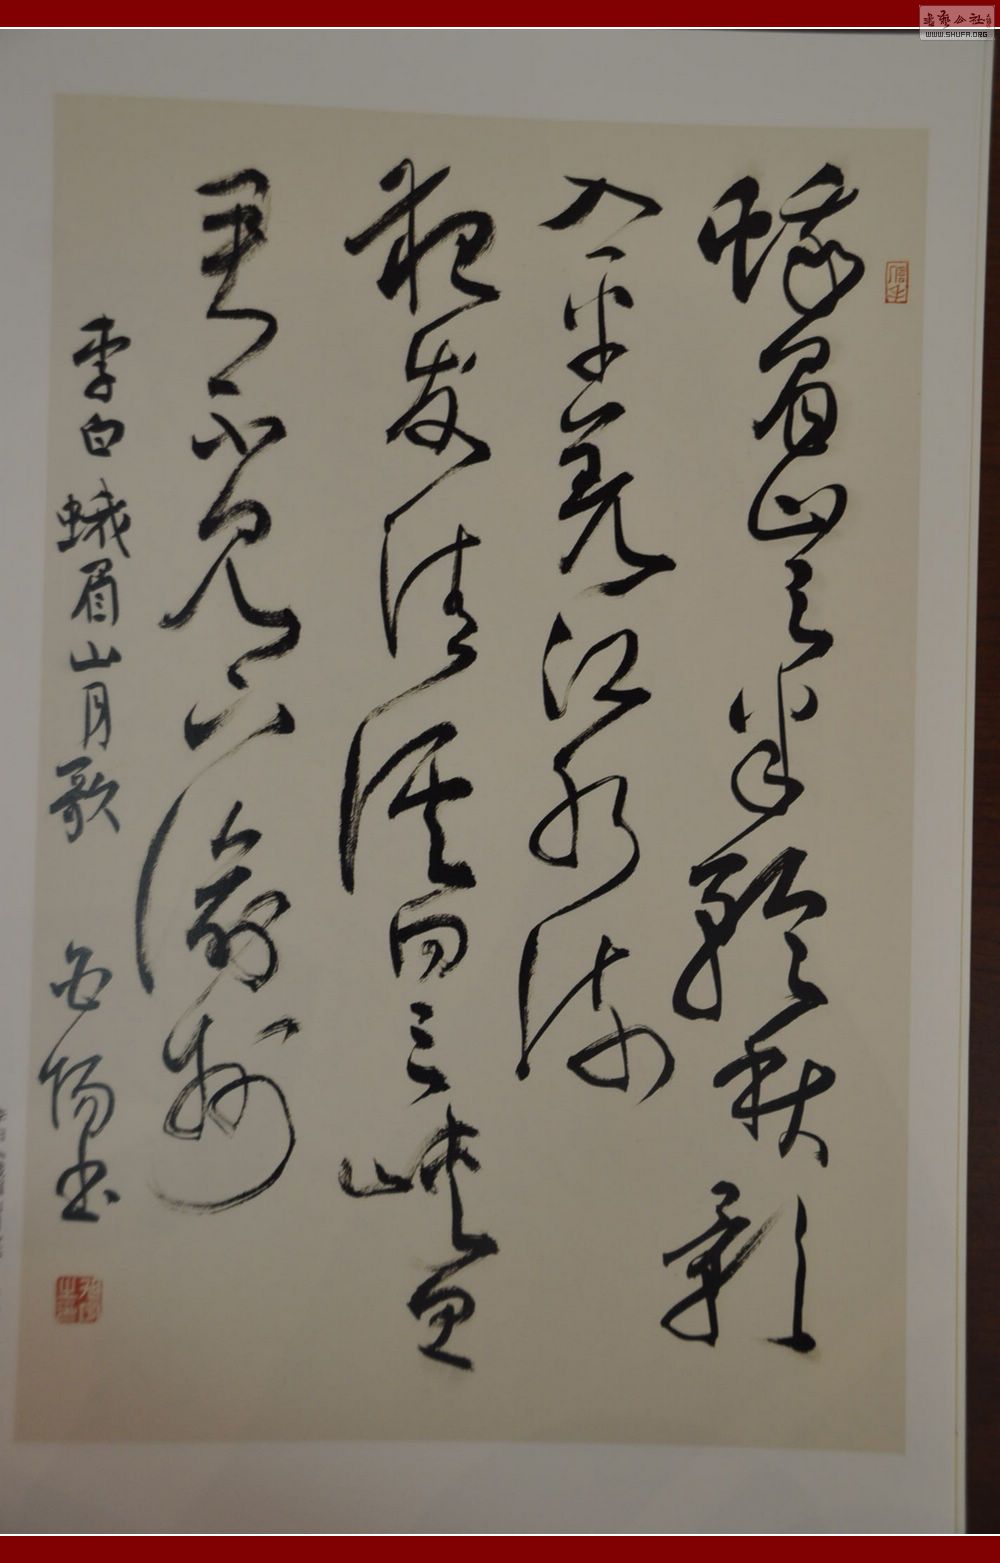 蛾眉山月半輪秋影
入平羌江水流
夜发清溪向三峽思
君不見下渝州
李白蛾眉山月歌 书
书艺公社
WWW.SHUFA.ORG